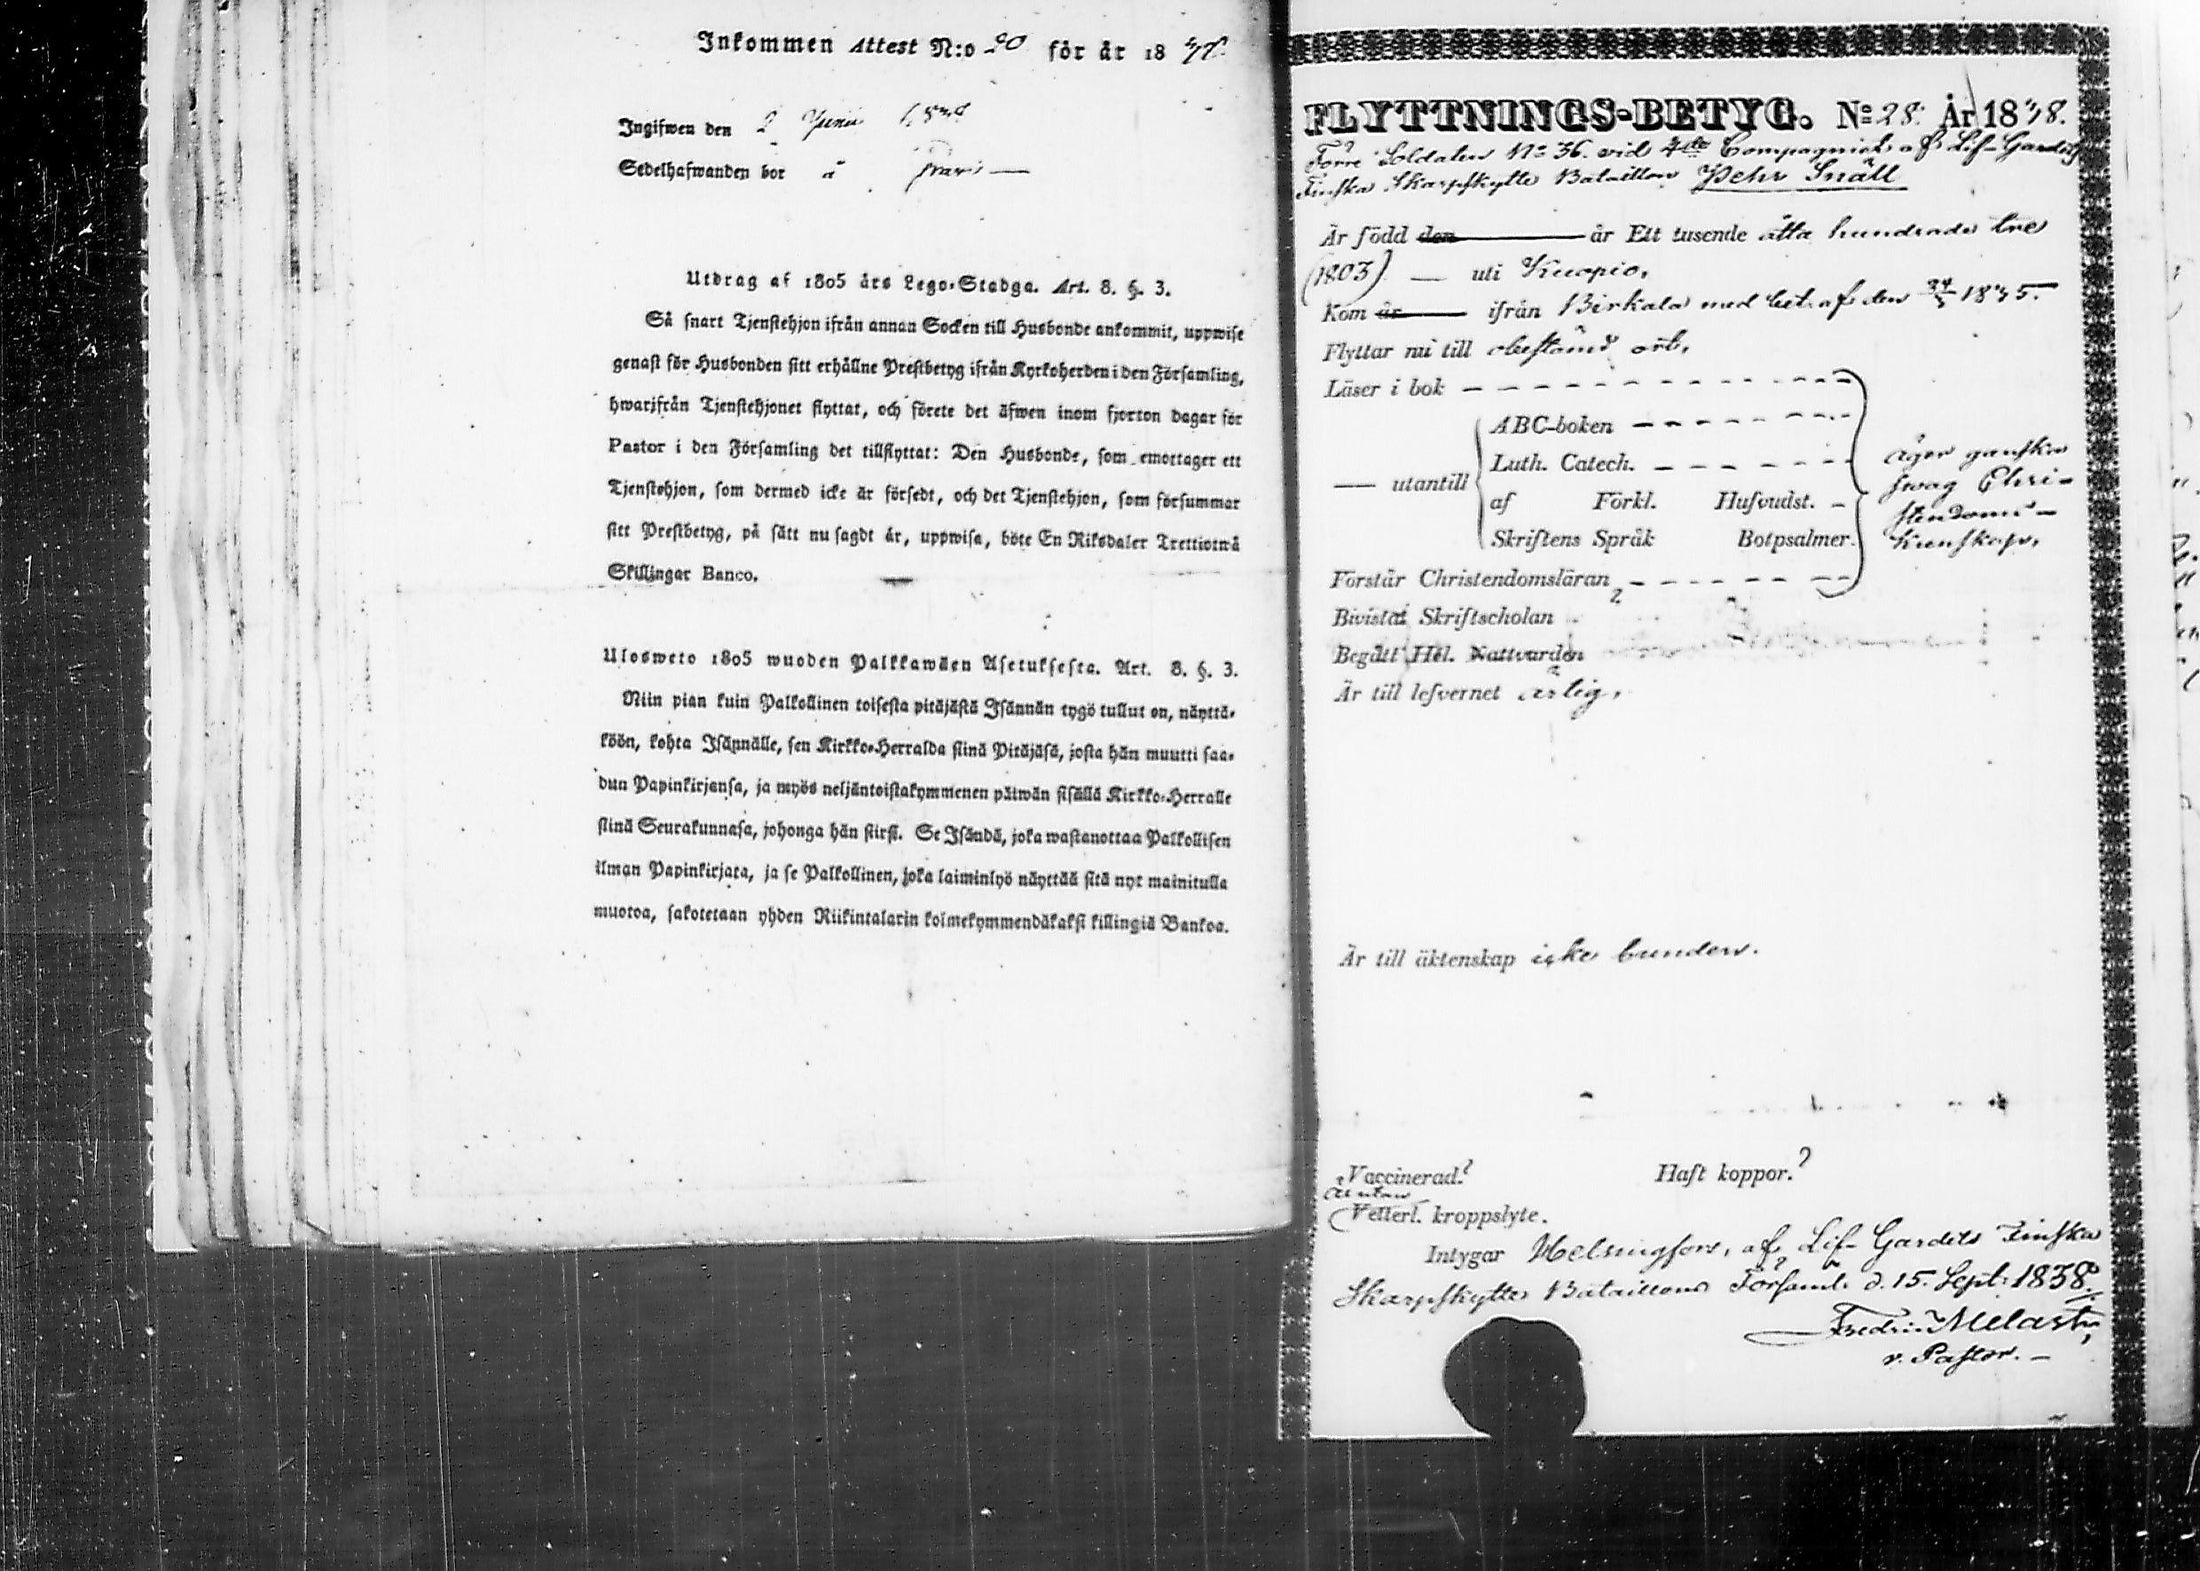 Inkommen Attest N:o 20 för år 18
Ingifwen den 2 Junii
Sedelhafwanden bor å
Utdrag af 1805 års Lego-Stadga. Art. 8. §. 3.
Så snart Tjenstehjon ifrån annan Socken till Husbonde ankommit, uppwise
genast för Husbonden sitt erhållne Prestbetyg ifrån Kyrkoherden i den Församling,
hwarifrån Tjenstehjonet flyttat, och förete det äfwen inom fjorton dagar för
Pastor i den Församling det tillflyttat: Den Husbonde, som emottager ett
Tjenstehjon, som dermed icke är försedt, och det Tjenstehjon, som försummar
sitt Prestbetyg, på sätt nu sagdt är, uppwisa, böte En Riksdaler Trettiotwå
Skillingar Banco.
Ulosweto 1805 wuoden Palkkawäen Asetuksesta. Art. 8. §. 3.
Niin pian kuin Palkollinen toisesta pitäjästä Isännän tygö tullut on, näyttä-
köön, kohta Isännälle, sen Kirkko-Herralda siinä Pitäjäsä, josta hän muutti saa-
dun Papinkirjansa, ja myös neljäntoistakymmenen päiwän sisällä Kirkko-Herralle
siinä Seurakunnasa, johonga hän siirsi. Se Isändä, joka wastanottaa Palkollisen
ilman Papinkirjata, ja se Palkollinen, joka laiminlyö näyttää sitä nyt mainitulla
muotoa, sakotetaan yhden Riikintalarin kolmekymmendäkaksi killingiä Bankoa.
FLYTTNINGS-BETYG. No 28. År 1838.
Förre Soldaten No 36. vid 4de Compagniet af Lif-Gardets
Finska Skarpskytte Bataillon Pehr Snäll
Är född den år Ett tusende åtta hundrade tre
(1803) — uti Kuopio.
Kom år ifrån Birkala med bet. af den 1835.
Flyttar nu till obestämd ort.
Läser i bok
ABC-boken
Luth. Catech.
— utantill
af Förkl. Hufvudst.
Skriftens Språk Botpsalmer.
äger ganska
swag Chri-
stendoms-
kunskap.
Förstår Christendomsläran
Bivistat Skriftscholan
Begått Hel. Nattvarden
Är till lefvernet ärlig.
Är till äktenskap icke bunden.
Vaccinerad? Haft koppor?
är utan
Vetterl. kroppslyte.
Intygar Helsingfors, af Lif-Gardets Finska
Skarpskytte Bataillons Församl. d. 15. Sept: 1838.
Fredr. Melart
v. Pastor.